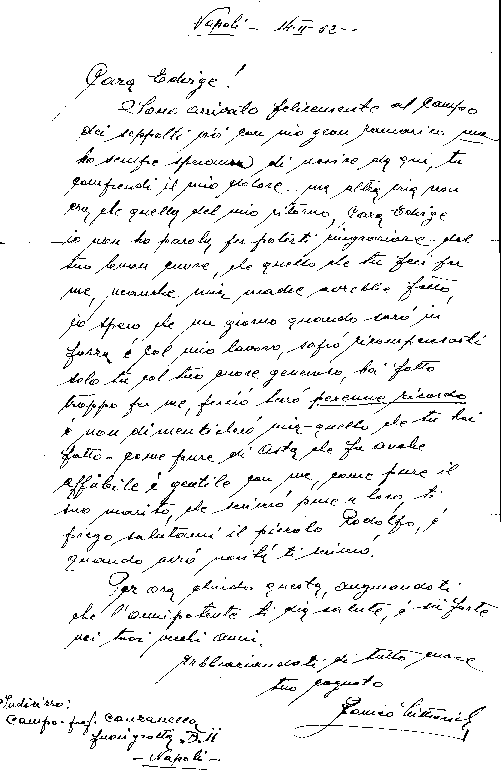 Napoli - 14-II-52-
Cara Edvige!
Sono arrivato felicemente al Campo
dei seppelliti più con mio gran rammarico, ma
ho sempre speranza di uscire da qui, tu
comprendi il mio dolore - ma altra via non
era che quella del mio ritorno, Cara Edvige
io non ho parole per poterti ringraziare del
tuo buon cuore, che quello che tu feci per
me, neanche mia madre avrebbe fatto,
io spero che un giorno quando sarò in
forza é col mio lavoro, saprò ricompensarti
solo tu col tuo cuore generoso, hai fatto
troppo per me, perciò sarà perenne ricordo
é non dimenticherò mia - quello che tu hai
fatto - come pure di Asta che fu anche
affabile é gentile con me, come pure il
suo marito, che scrivirò pure a loro, ti
prego salutarmi il piccolo Rodolfo, é
quando avrò novità ti scrivo.
Per ora chiudo questa, augurandoti
che l'omnipotente ti dia salute, é sii forte
nei tuoi vecchi anni.
Abbracciandoti di tutto cuore
tuo cognato
Indirizzo:
Campo - prof. Canzanella
Fuorigrotta
- Napoli -